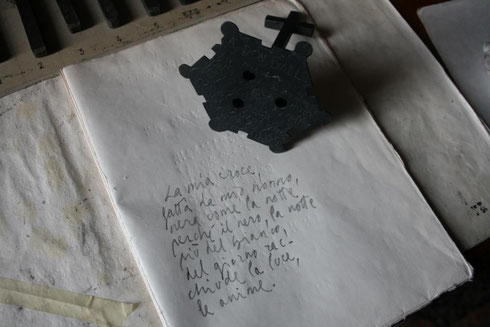 La mia croce,
fatta da mio nonno,
nera come la notte
perché il nero, la notte
più del bianco,
del giorno rac-
chiude la luce,
le anime.